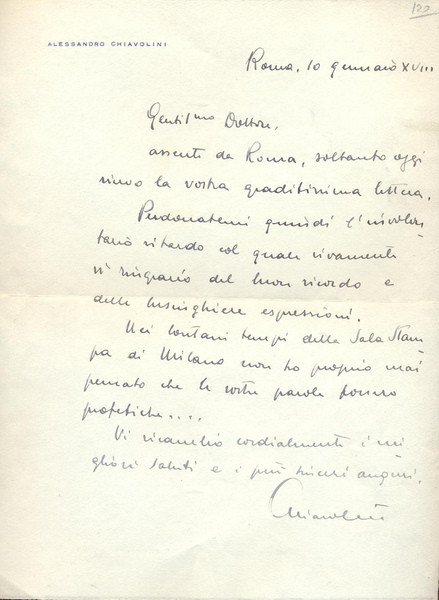 122
ALESSANDRO CHIAVOLINI
Roma, 10 gennaio XVIII
Gentil.mo Dottore,
assente da Roma, soltanto oggi
ricevo la vostra graditissima lettera.
Perdonatemi quindi l'involon-
tario ritardo col quale vivamente
vi ringrazio del buon ricordo e
delle lusinghiere espressioni.
Nei lontani tempi della Sala Stam-
pa di Milano non ho proprio mai
pensato che le vostre parole fossero
profetiche....
Vi ricambio cordialmente i mi-
gliori saluti e i più sinceri auguri.
Chiavolini